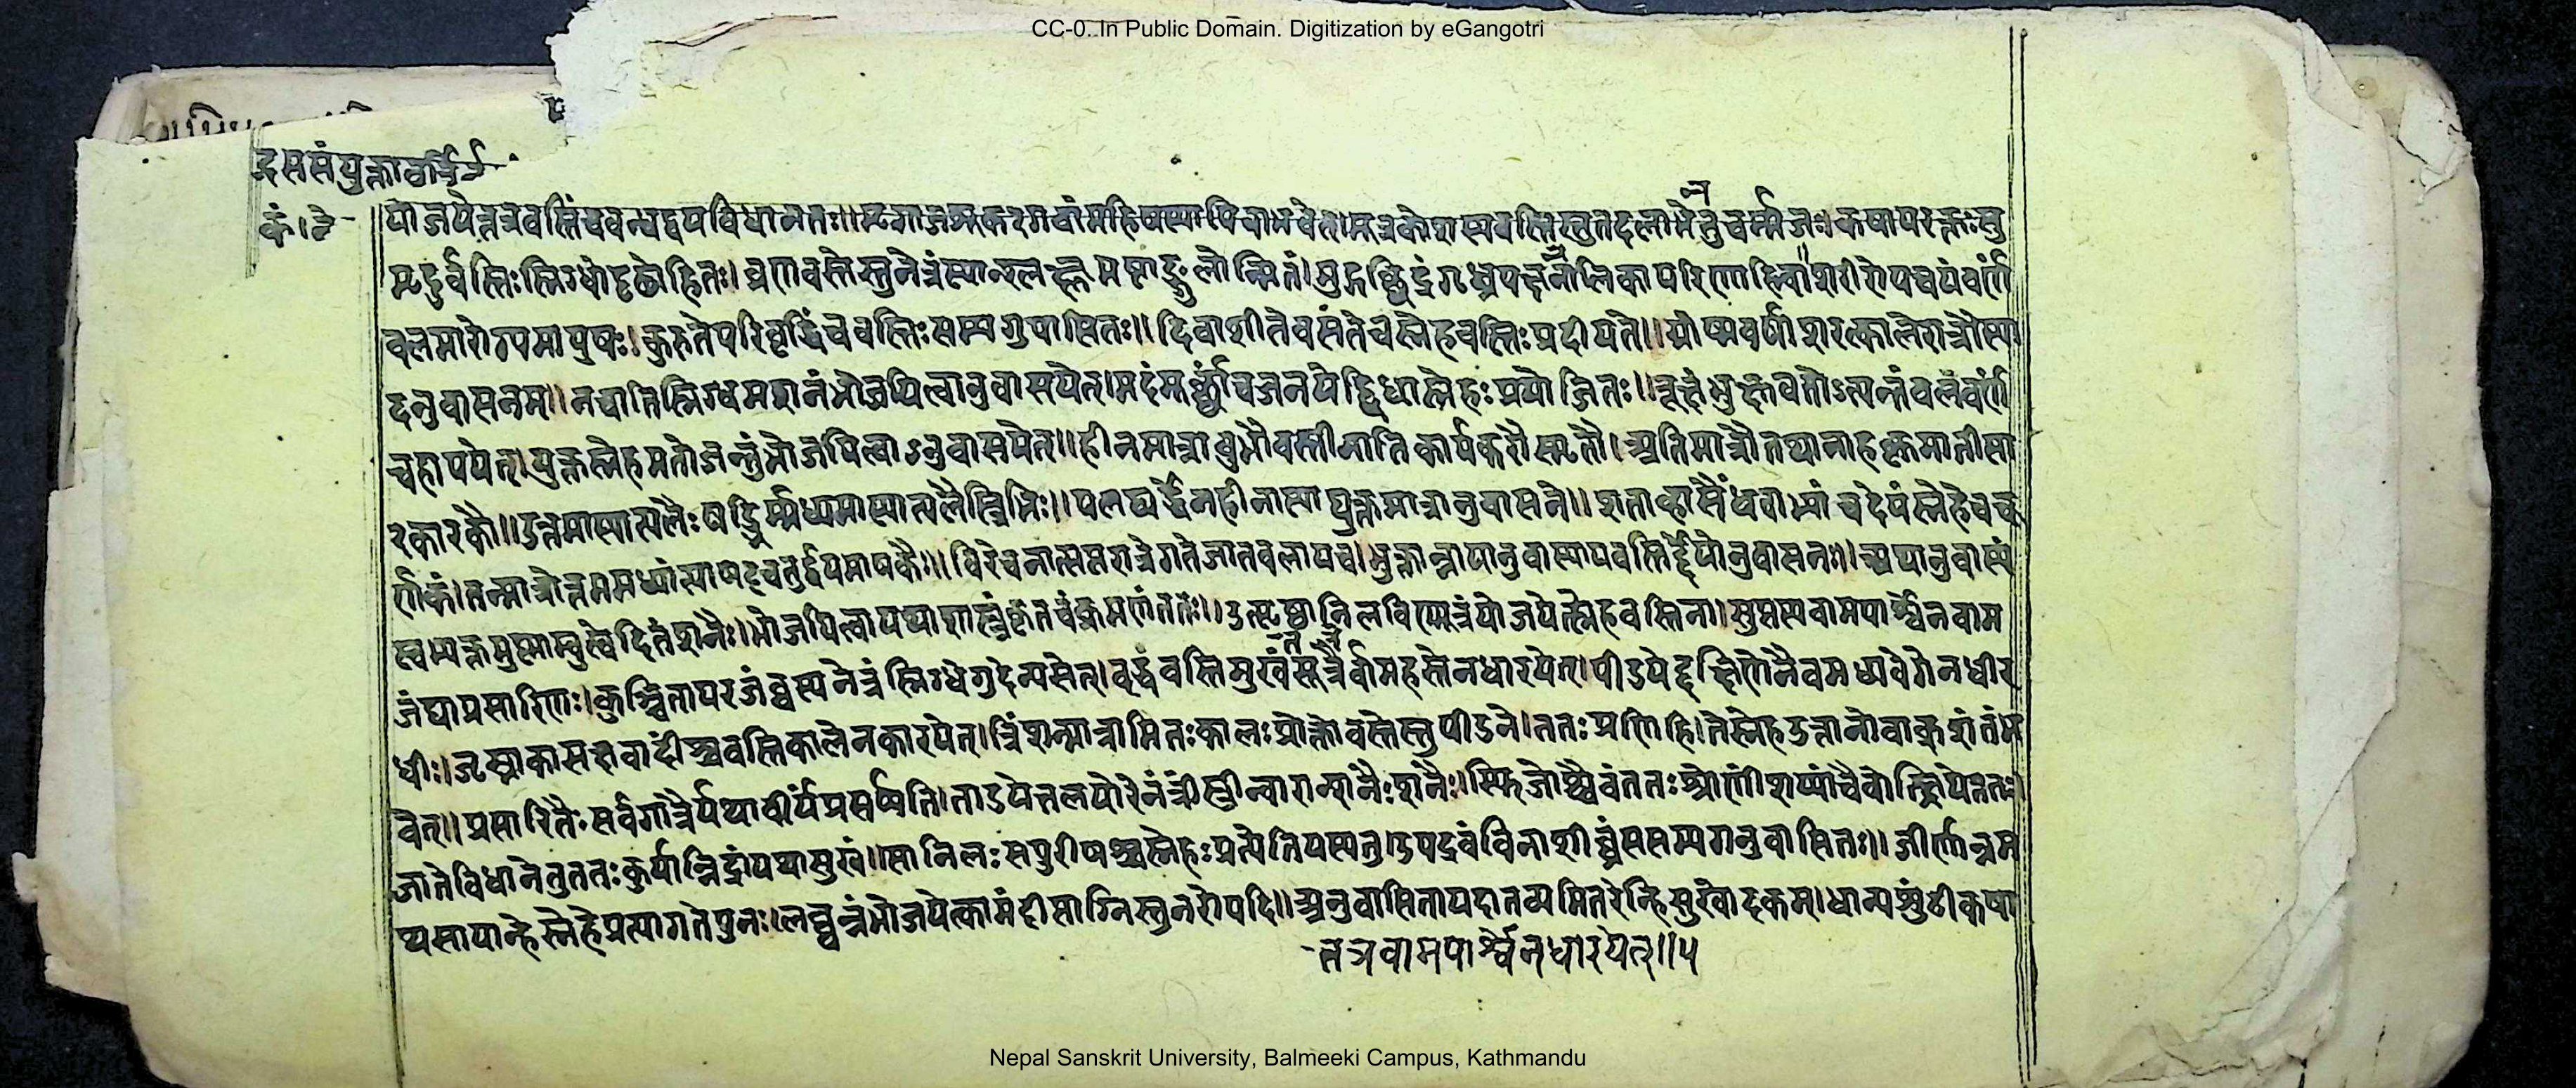 CC-0. In Public Domain. Digitization by eGangotri
द्रससंयुक्ता
कं।नै
योजयेत्तत्रवस्तिंचबन्धद्वयविधानतः॥मृगाजशूकरगवांमहिषस्यापिवाभवेत्।मूत्रकोशस्यवस्तिस्तुतदलाभेतुचर्म्मजः।कषायरक्तःसु
मृदुर्वस्तिःस्निग्धोदृढोहितः।व्रणवस्तेस्तुनेत्रंस्यात्श्लक्ष्णमष्टाङ्गुलोन्मितं।मुद्गच्छिद्रंगृध्रपक्षनालिकापरिणाहिवा॥शरीरोपचयंवर्णं
बलमारोग्यमायुषः।कुरुतेपरिवृद्धिंचवस्तिःसम्यगुपासितः॥दिवाशीतेवसंतेचस्नेहवस्तिःप्रदीयते॥ग्रीष्मवर्षाशरत्कालेरात्रौस्या
दनुवासनम्॥नचातिस्निग्धमशनंभोजयित्वानुवासयेत्।मदंमूर्छांचजनयेद्द्विधास्नेहःप्रयोजितः॥रूक्षंभुक्तवतोऽत्यन्तंबलंवर्णं
चहापयेत्।युक्तस्नेहमतोजन्तुंभोजयित्वाऽनुवासयेत्॥हीनमात्रावुभौवस्तीनातिकार्यकरौस्मृतौ।अतिमात्रौतथानाहक्लमातीसा
रकारकौ॥उत्तमास्यात्पलैःषड्भिर्म्मध्यमास्यात्पलैस्त्रिभिः॥पलघर्द्धेनहीनास्यायुक्तमात्रानुवासने॥शताव्हासैंधवाभ्यांचदेयंस्नेहेचचू
र्णकं।तन्मात्रोत्तममध्यांत्याषट्चतुर्द्वयमाषकैः॥विरेचनात्सप्तरात्रेगतेजातबलायच।भुक्तान्नायानुवास्यायवस्तिर्द्देयोनुवासनः।अथानुवास्यं
स्वभ्यक्तमुष्माम्बुस्वेदितंशनैः।भोजयित्वायथाशास्त्रंकृतचंक्रमणंततः॥उत्सृष्ठानिलविण्मूत्रंयोजयेत्स्नेहवस्तिना।सुप्तस्यवामपार्श्वेनवाम
जंघाप्रसारिणः।कुञ्चितापरजंघस्यनेत्रंस्निग्धेगुदेन्यसेत्।बद्धंवस्तिमुखंसूत्रैर्वामहस्तेनधारयेत्।पीडयेद्दक्षिणेनैवमध्यवेगेनधीर
धीः।जृम्भाकासक्षवादींश्चवस्तिकालेनकारयेत्।त्रिंशन्मात्रामितःकालःप्रोक्तोवस्तेस्तुपीडने।ततःप्रणिहि।तेस्नेहउत्तानोवाक्शतंभ
वेत्॥प्रसारितैःसर्वगात्रैर्यथावीर्यंप्रसर्प्पति।ताडयेत्तलयोरेनंत्रींस्त्रीन्वारान्शनैःशनैः।स्फिजोश्चैवंततःश्रोणींशय्यांचैवोत्क्षिपेत्ततः।
जातेविधानेतुततःकुर्यान्निद्रांयथासुखं॥सानिलःसपुरीषश्चस्नेहःप्रत्येतियस्यतु।उपद्रवंविनाशीघ्रंससम्यगनुवासितः॥जीर्णान्नम
थसायान्हेस्नेहेप्रत्यागतेपुनः।लघ्वन्नंभोजयेत्कामंदीप्ताग्निस्तुनरोयदि॥अनुवासितायदातव्यमितरेन्हिसुखोदकम्।धान्यशुंठीकषा
तत्रवामपार्श्वेनधारयेत्॥५
Nepal Sanskrit University, Balmeeki Campus, Kathmandu